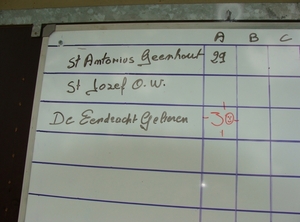 A B C
St Antonius Geenhout 29
St Jozef O.W.
De Eendracht Gelmen 30